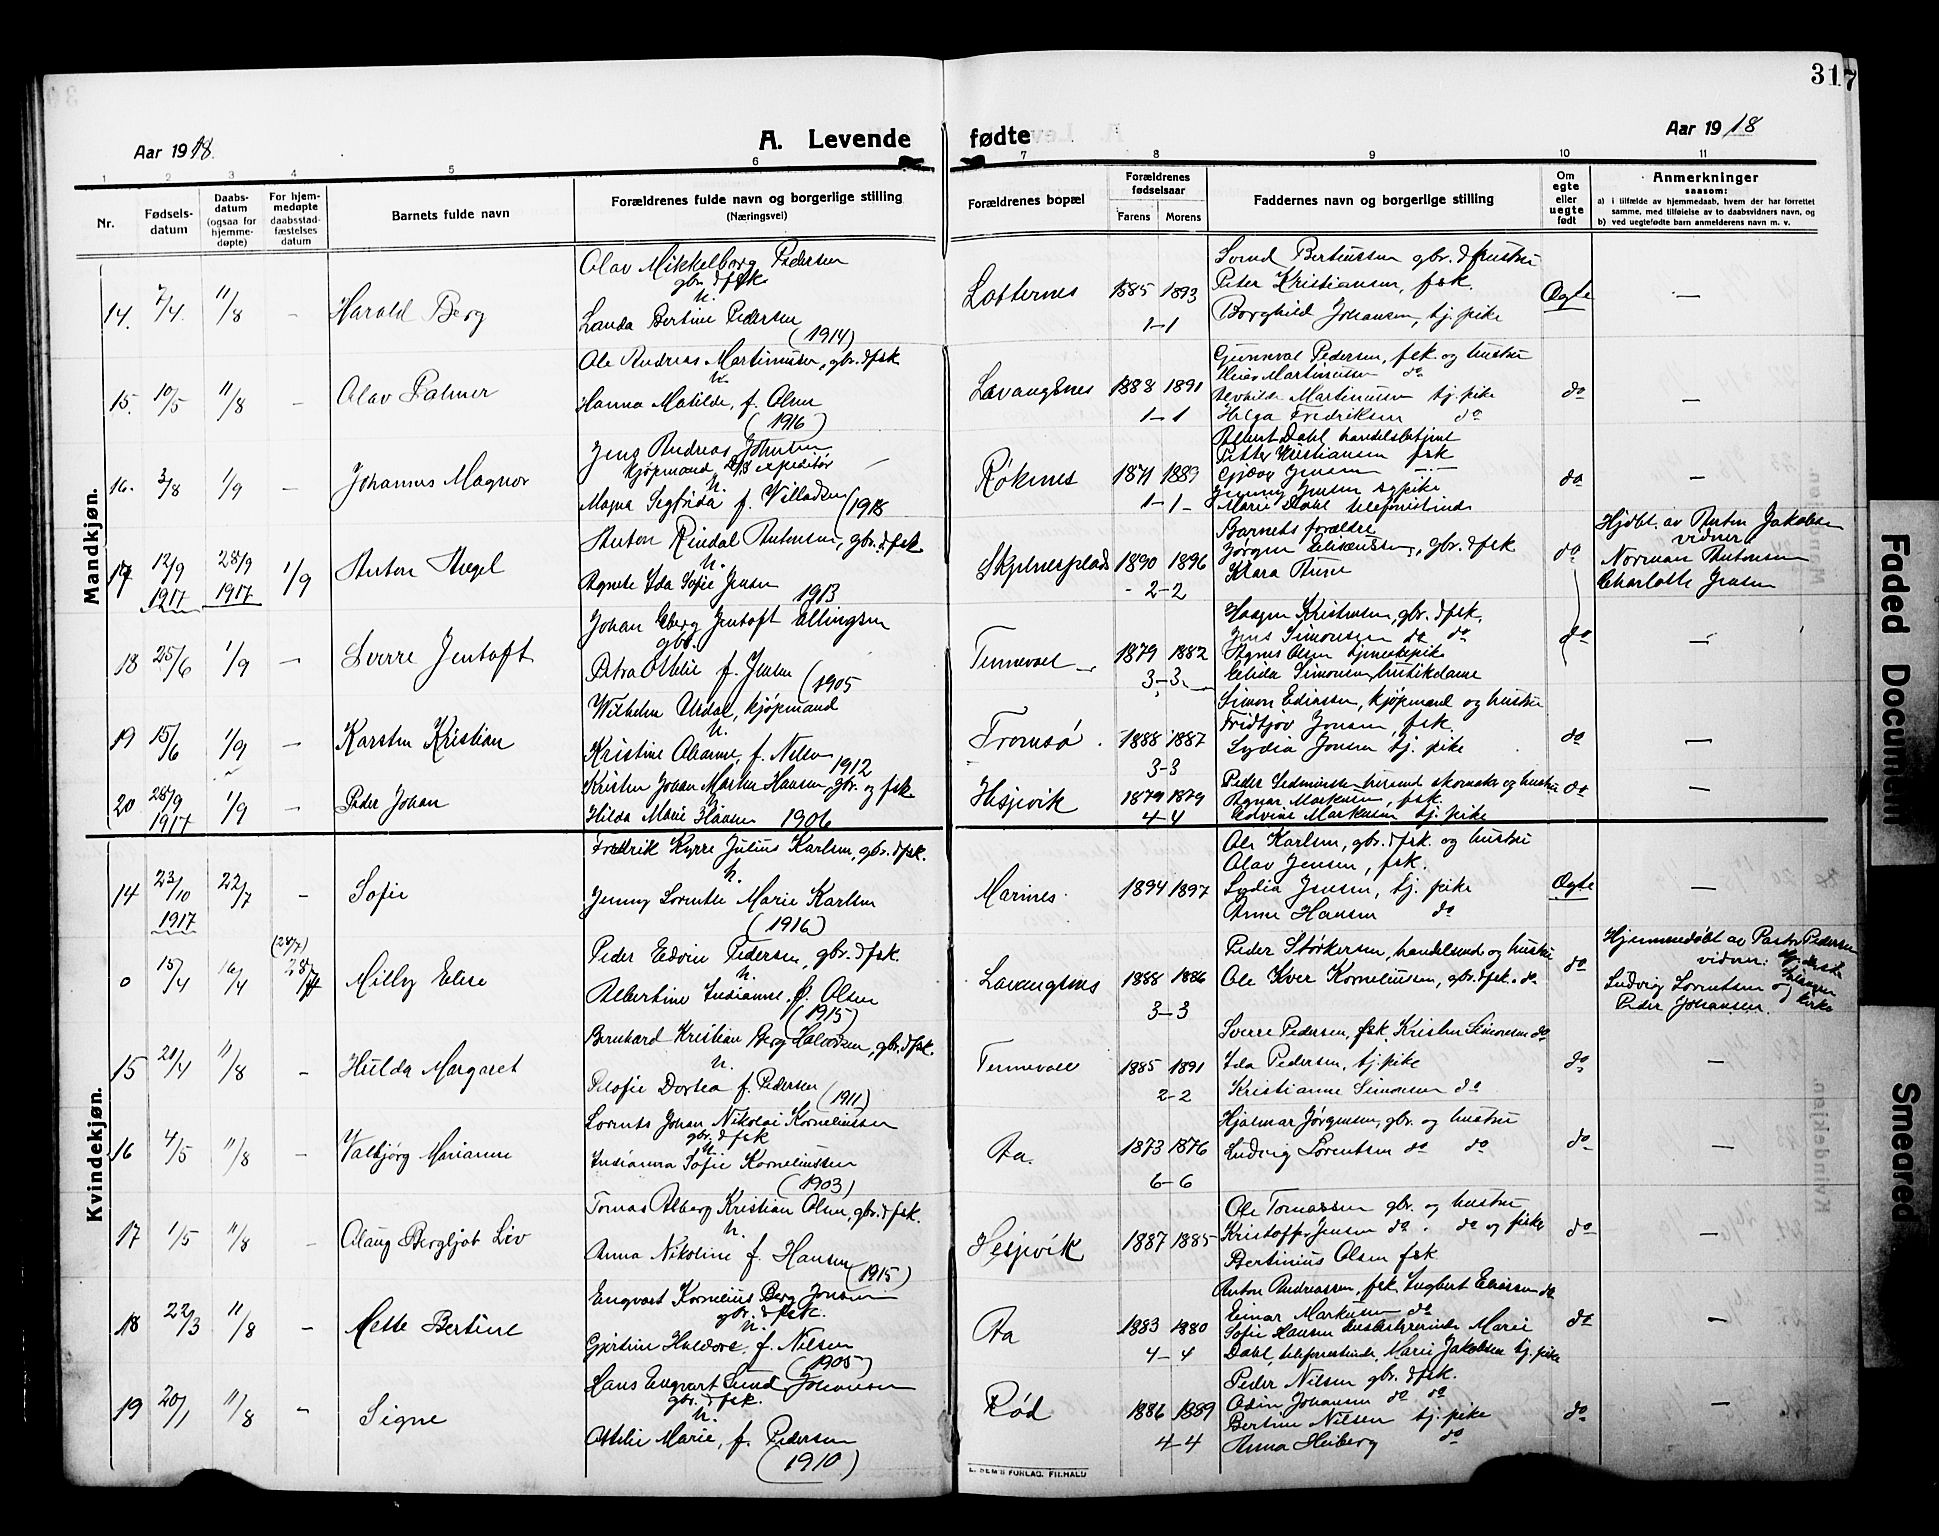 317
Aar 1918.
A. Levende fødte
Aar 1918
1 2 3 4 5 6 7 8 9 10 11
Nr.
Fødsels-datum
Daabs-datum (ogsaa for hjemme-døpte)
For hjem-medøpte daabsstad-fæstelses datum
Barnets fulde navn
Forældrenes fulde navn og borgerlige stilling
(Næringsvei)
Forældrenes bopæl
Forældrenes fødselsaar
Farens Morens
Faddernes navn og borgerlige stilling
Om egte eller uegte født
Anmerkninger
saasom:
a) i tilfælde av hjemmedaab, hvem der har forrettet
samme, med tilføielse av to daabsvidners navn, og
b) ved uegtefødte barn anmelderens navn m. v.
Mandkjøn.
Olav Mikkelborg Pedersen
gbr. & fsk.
14. 7/4. 11/8 - Harald Berg
h.
Landa Bertine Pedersen
(1914)
Lotternes 1885 1893
1-1
Svend Berteussen gbr. & hustru
Peter Kristiansen, fsk.
Borghild Johansen, tj. pike
Ægte —
Ole Andreas Martinusen, gbr. & fsk
15. 10/5 11/8 - Olav Palmer
h.
Hanna Matilde, f. Olsen
(1916)
Lavangsnes 1888 1891
1-1
Gunnval Pedersen, fsk. og hustru
Martinussen do
Martinussen tj. pike
Helga Fredriksen do
do —
Jens Andreas Johnsen
kjøpmand, D/S expeditør
16. 3/8 1/9 - Johannes Magnor
h.
Magna Segfrida f. Willadsen (1918
Røkenes 1871 1889
1-1-
Albert Dahl handelsbetjent
Petter Kristiansen fsk
Jensen
Jenny Jensen tj. pike
Marie Dahl telefonistinde
do —
Anton Rindal Antonsen, gbr. & fsk
17 12/9 1917 28/9 1917 1/9 Anton Hegel
h.
Agnete Ida Sofie Jensen 1913
Skjelnesplads 1890 1896
- 2-2
Barnets forældre
Jørgen Eliseussen, gbr. & fsk
Klara Anne
do
Hjdbt. av Anton Jakobsen
vidner
Norman Antonsen
Charlotte Jensen
Johan Eberg Jentoft Ellingsen
gbr.
18 25/6 1/9 — Sverre Jentoft
Petra Otelie f. Jensen (1905
Tennevoll 1879 1882
3-3
Haagen Kristensen, gbr. & fsk.
Jens Simonsen do do
Agnes Olsen tjenestepike
Elida Simonsen butikdame
do —
Wilhelm Urdal, kjøpmand
19 15/6 1/9 — Karsten Kristian
h.
Kristine Oleanne, f. Nilsen 1912
Tromsø. 1888 1887
3-3
Simon Ediassen, kjøpmand og hustru
Fridtjov Jensen, fsk.
Lydia Jensen tj. pike
do —
20 28/9 1917 1/9 — Peder Johan
Kristen Johan Martin Hansen, gbr. og fsk
h
Hilda Marie Hansen 1906
Hesjevik 1879 1879
4-4
Agnar Markusen, fsk.
Edvine Markusen tj. pike
do —
Kvindekjøn.
Fredrik Kyrre Julius Karlsen, gbr. & fsk.
14 23/10 1917 22/7 - Sofie
h.
Jenny Lorentse Marie Karlsen
(1916)
Marines 1894 1897
Ole Karlsen, gbr. & fsk. og hustru
Olav Jensen, fsk.
Lydia Jensen, tj. pike
Anne Hansen do
Ægte —
Peder Edvin Pedersen, gbr. & fsk.
0 15/4 16/4 (28/7) 28/7 Milly Elise
h.
Albertine Indianne f. Olsen
(1915)
Lavangsnes 1888 1886
3-3
Peder Størkersen, handelsmd og hustru
Ole Kver Korneliussen, gbr. & fsk. do
do
Hjemmedøbt av Pastor Pedersen
vidner:
Ludvig Lorentsen og
Peder Johansen. kirke
Bernhard Kristian Berg Halvorsen, gbr. & fsk.
15 20/4 11/8 - Hulda Margaret
h.
Pelofie Dortea f. Pedersen
(1911)
Tennevoll 1885 1891
2-2
Sverre Pedersen, fsk. Kristen Simonsen do
Ida Pedersen, tj. pike
Kristianne Simonsen do
do —
Lorents Johan Nikolai Korneliussen
gbr. & fsk
16 4/5 11/8 - Valbjørg Marianne
h
Indianna Sofie Korneliussen
(1903)
Aa. 1873 1876
6-6
Hjalmar Jørgensen, gbr. og hustru
Ludvig Lorentsen do do
do —
Tomas Alberg Kristian Olsen, gbr. & fsk.
17 1/5 11/8 - Olaug Bergljot Liv
h.
Anna Nikoline f. Hansen
(1915)
Hesjevik 1887 1885
Ole Tomassen gbr. og hustru
Kristoffer Jensen do. do og fisker
Bertinius Olsen fsk
do —
Engvart Kornelius Berg Jensen
gbr. & fsk.
18 22/3 11/8 - Mette Bertine
h.
Gjertine Haldora, f. Nilsen
(1905)
Aa 1883 1880
4-4
Anton Andreassen, fsk Ingbert Eliassen do
Einar Markusen do
Sofie Hansen husbestyrerinde Marie
Dahl, telefonistinde, Marie Jakobsen tj. pike
do —
Hans Engvart Sund Johansen
gbr. & fsk.
19 20/1 11/8 - Signe
h.
Otelie Marie, f. Pedersen
(1910)
Rød 1886 1889
4-4
Peder Nilsen gbr. & fsk.
Odin Johansen do do
Bertine Nilsen tj. pike
Anna Heiberg do
do —
E. SEM'S FORLAG, FR.HALD
Faded Document
Smeared